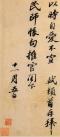 以時自愛不宣　軾頓首再拜
民師帳句推官閣下
十一月五日